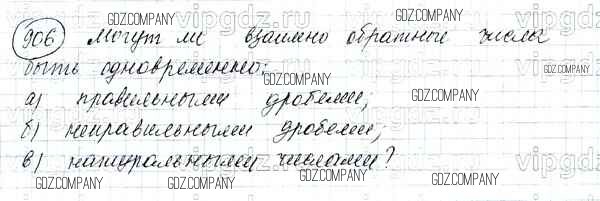 906 Могут ли взаимно обратные числа
быть одновременно:
а) правильными дробями;
б) неправильными дробями;
в) натуральными числами?
GDZ.COMPANY
GDZ.COMPANY
GDZ.COMPANY
GDZ.COMPANY
GDZ.COMPANY
GDZ.COMPANY
GDZ.COMPANY
GDZ.COMPANY
GDZ.COMPANY
GDZ.COMPANY
vipgdz.ru
vipgdz.ru
vipgdz.ru